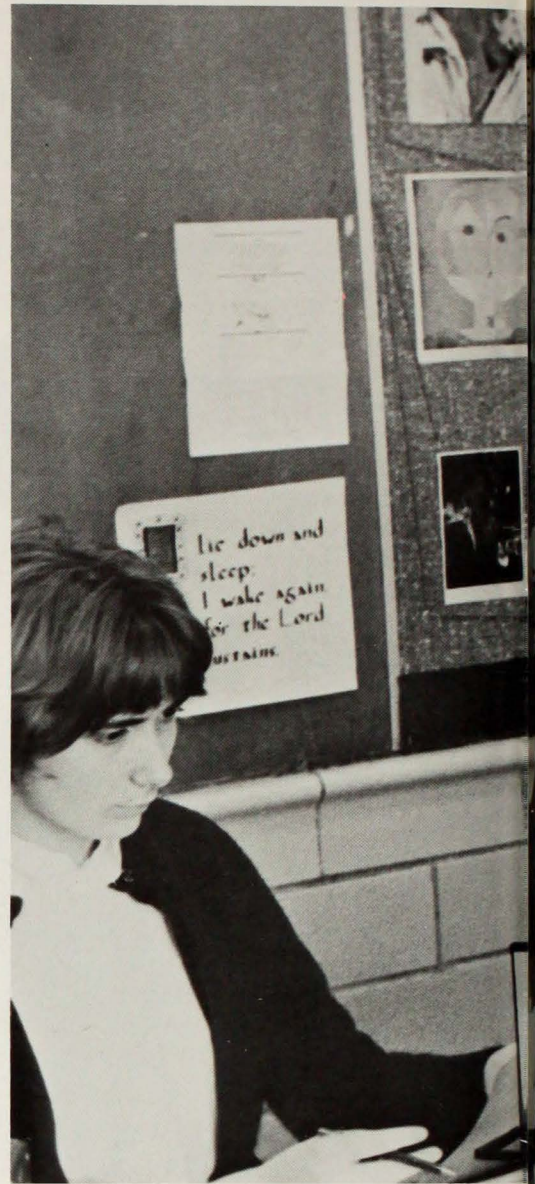 lie down and
sleep;
I wake again
for the Lord
sustains.